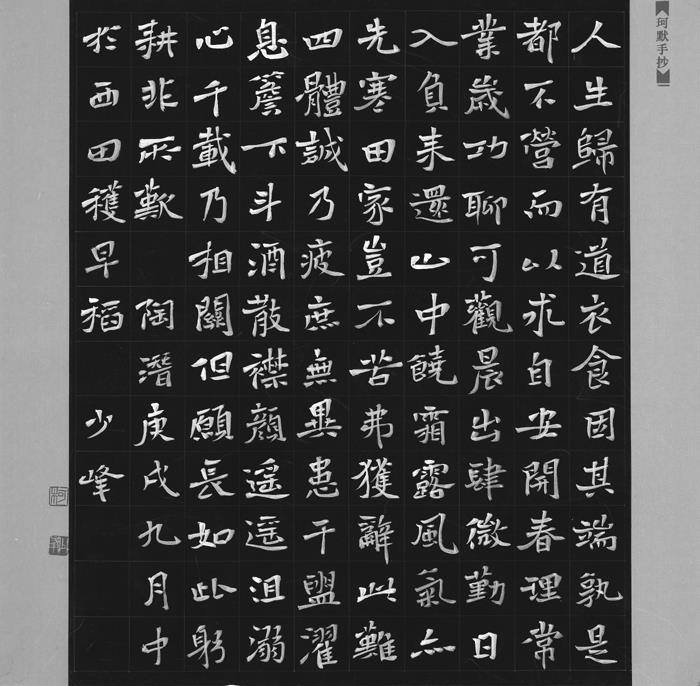 珂默手抄
人生歸有道衣食因其端孰是
都不營而以求自安開春理常
業歲功聊可觀晨出肆微勤日
入負耒還山中饒霜露風氣亦
先寒田家豈不苦弗獲辭此難
四體誠乃疲庶無異患干盥濯
息簷下斗酒散襟顏遥遥沮溺
心千載乃相關但願長如此躬
耕非所歎 陶潛庚戌九月中
於西田穫早稻 少峰